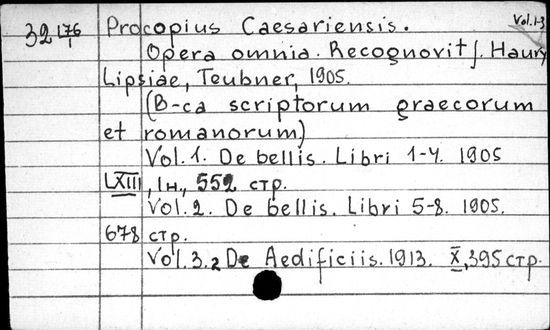 Vol. 1-3
32 176/1 Procopius Caesariensis.
Opera omnia. Recognovit J. Haury
Lipsiae, Teubner, 1905.
(B-ca scriptorum graecorum
et romanorum)
Vol. 1. De bellis. Libri 1-4. 1905
LXIII, 1н., 552 стр.
Vol. 2. De bellis. Libri 5-8. 1905.
678 стр.
Vol. 3.2 De Aedificiis. 1913. X, 395 стр.